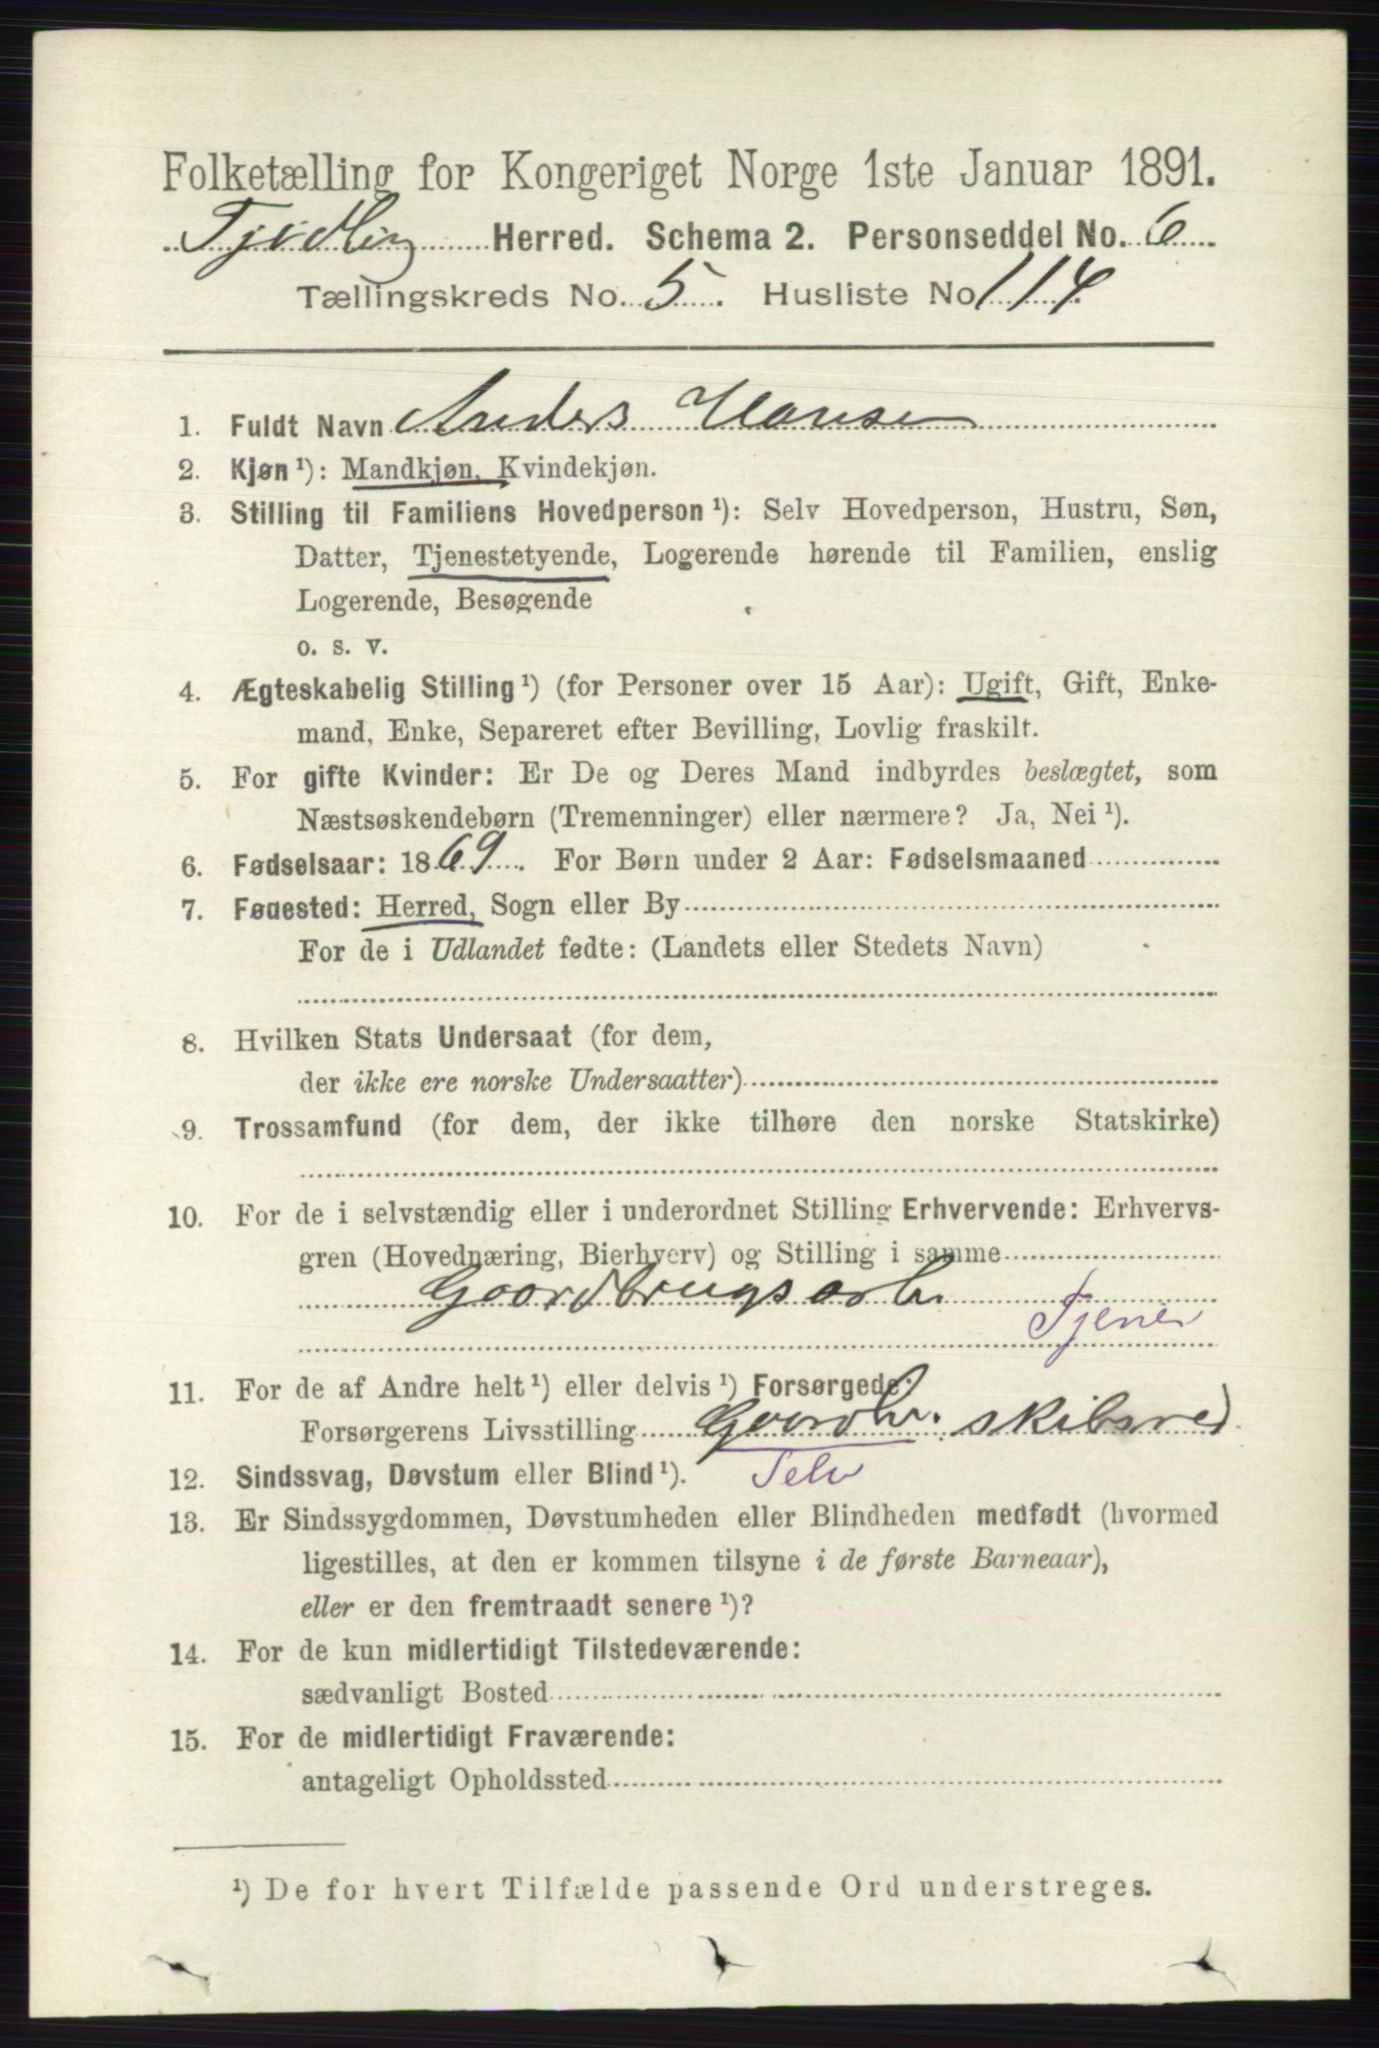 Folketælling for Kongeriget Norge 1ste Januar 1891.
Tjødling Herred. Schema 2. Personseddel No. 6
Tællingskreds No. 5. Husliste No 114
1. Fuldt Navn Anders Hansen
2. Kjøn ¹): Mandkjøn, Kvindekjøn.
3. Stilling til Familiens Hovedperson ¹): Selv Hovedperson, Hustru, Søn,
Datter, Tjenestetyende, Logerende hørende til Familien, enslig
Logerende, Besøgende
o. s. v.
4. Ægteskabelig Stilling ¹) (for Personer over 15 Aar): Ugift, Gift, Enke-
mand, Enke, Separeret efter Bevilling, Lovlig fraskilt.
5. For gifte Kvinder: Er De og Deres Mand indbyrdes beslægtet, som
Næstsøskendebørn (Tremenninger) eller nærmere? Ja, Nei ¹).
6. Fødselsaar: 1869. For Børn under 2 Aar: Fødselsmaaned
7. Fødested: Herred, Sogn eller By
For de i Udlandet fødte: (Landets eller Stedets Navn)
8. Hvilken Stats Undersaat (for dem,
der ikke ere norske Undersaatter)
9. Trossamfund (for dem, der ikke tilhøre den norske Statskirke)
10. For de i selvstændig eller i underordnet Stilling Erhvervende: Erhvervs-
gren (Hovednæring, Bierhverv) og Stilling i samme
Gaardbrugsarb.
Tjener
11. For de af Andre helt ¹) eller delvis ¹) Forsørgede:
Forsørgerens Livsstilling Gaardbr. skibsred
12. Sindssvag, Døvstum eller Blind ¹). Selv
13. Er Sindssygdommen, Døvstumheden eller Blindheden medfødt (hvormed
ligestilles, at den er kommen tilsyne i de første Barneaar),
eller er den fremtraadt senere ¹)?
14. For de kun midlertidigt Tilstedeværende:
sædvanligt Bosted
15. For de midlertidigt Fraværende:
antageligt Opholdssted
¹) De for hvert Tilfælde passende Ord understreges.